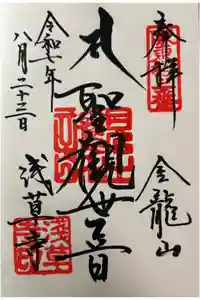 奉拝
金龍山
聖観世音
浅草寺
令和七年
八月二十三日
浅草寺